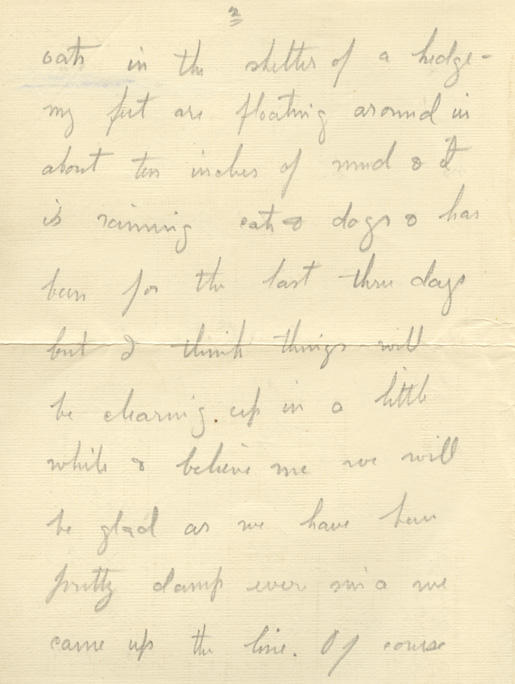 2
oats in the shelter of a hedge -
my feet are floating around in
about ten inches of mud & it
is raining cats & dogs & has
been for the last three days
but I think things will
be clearing up in a little
while & believe me we will
be glad as we have been
pretty damp ever since we
came up the line. Of course